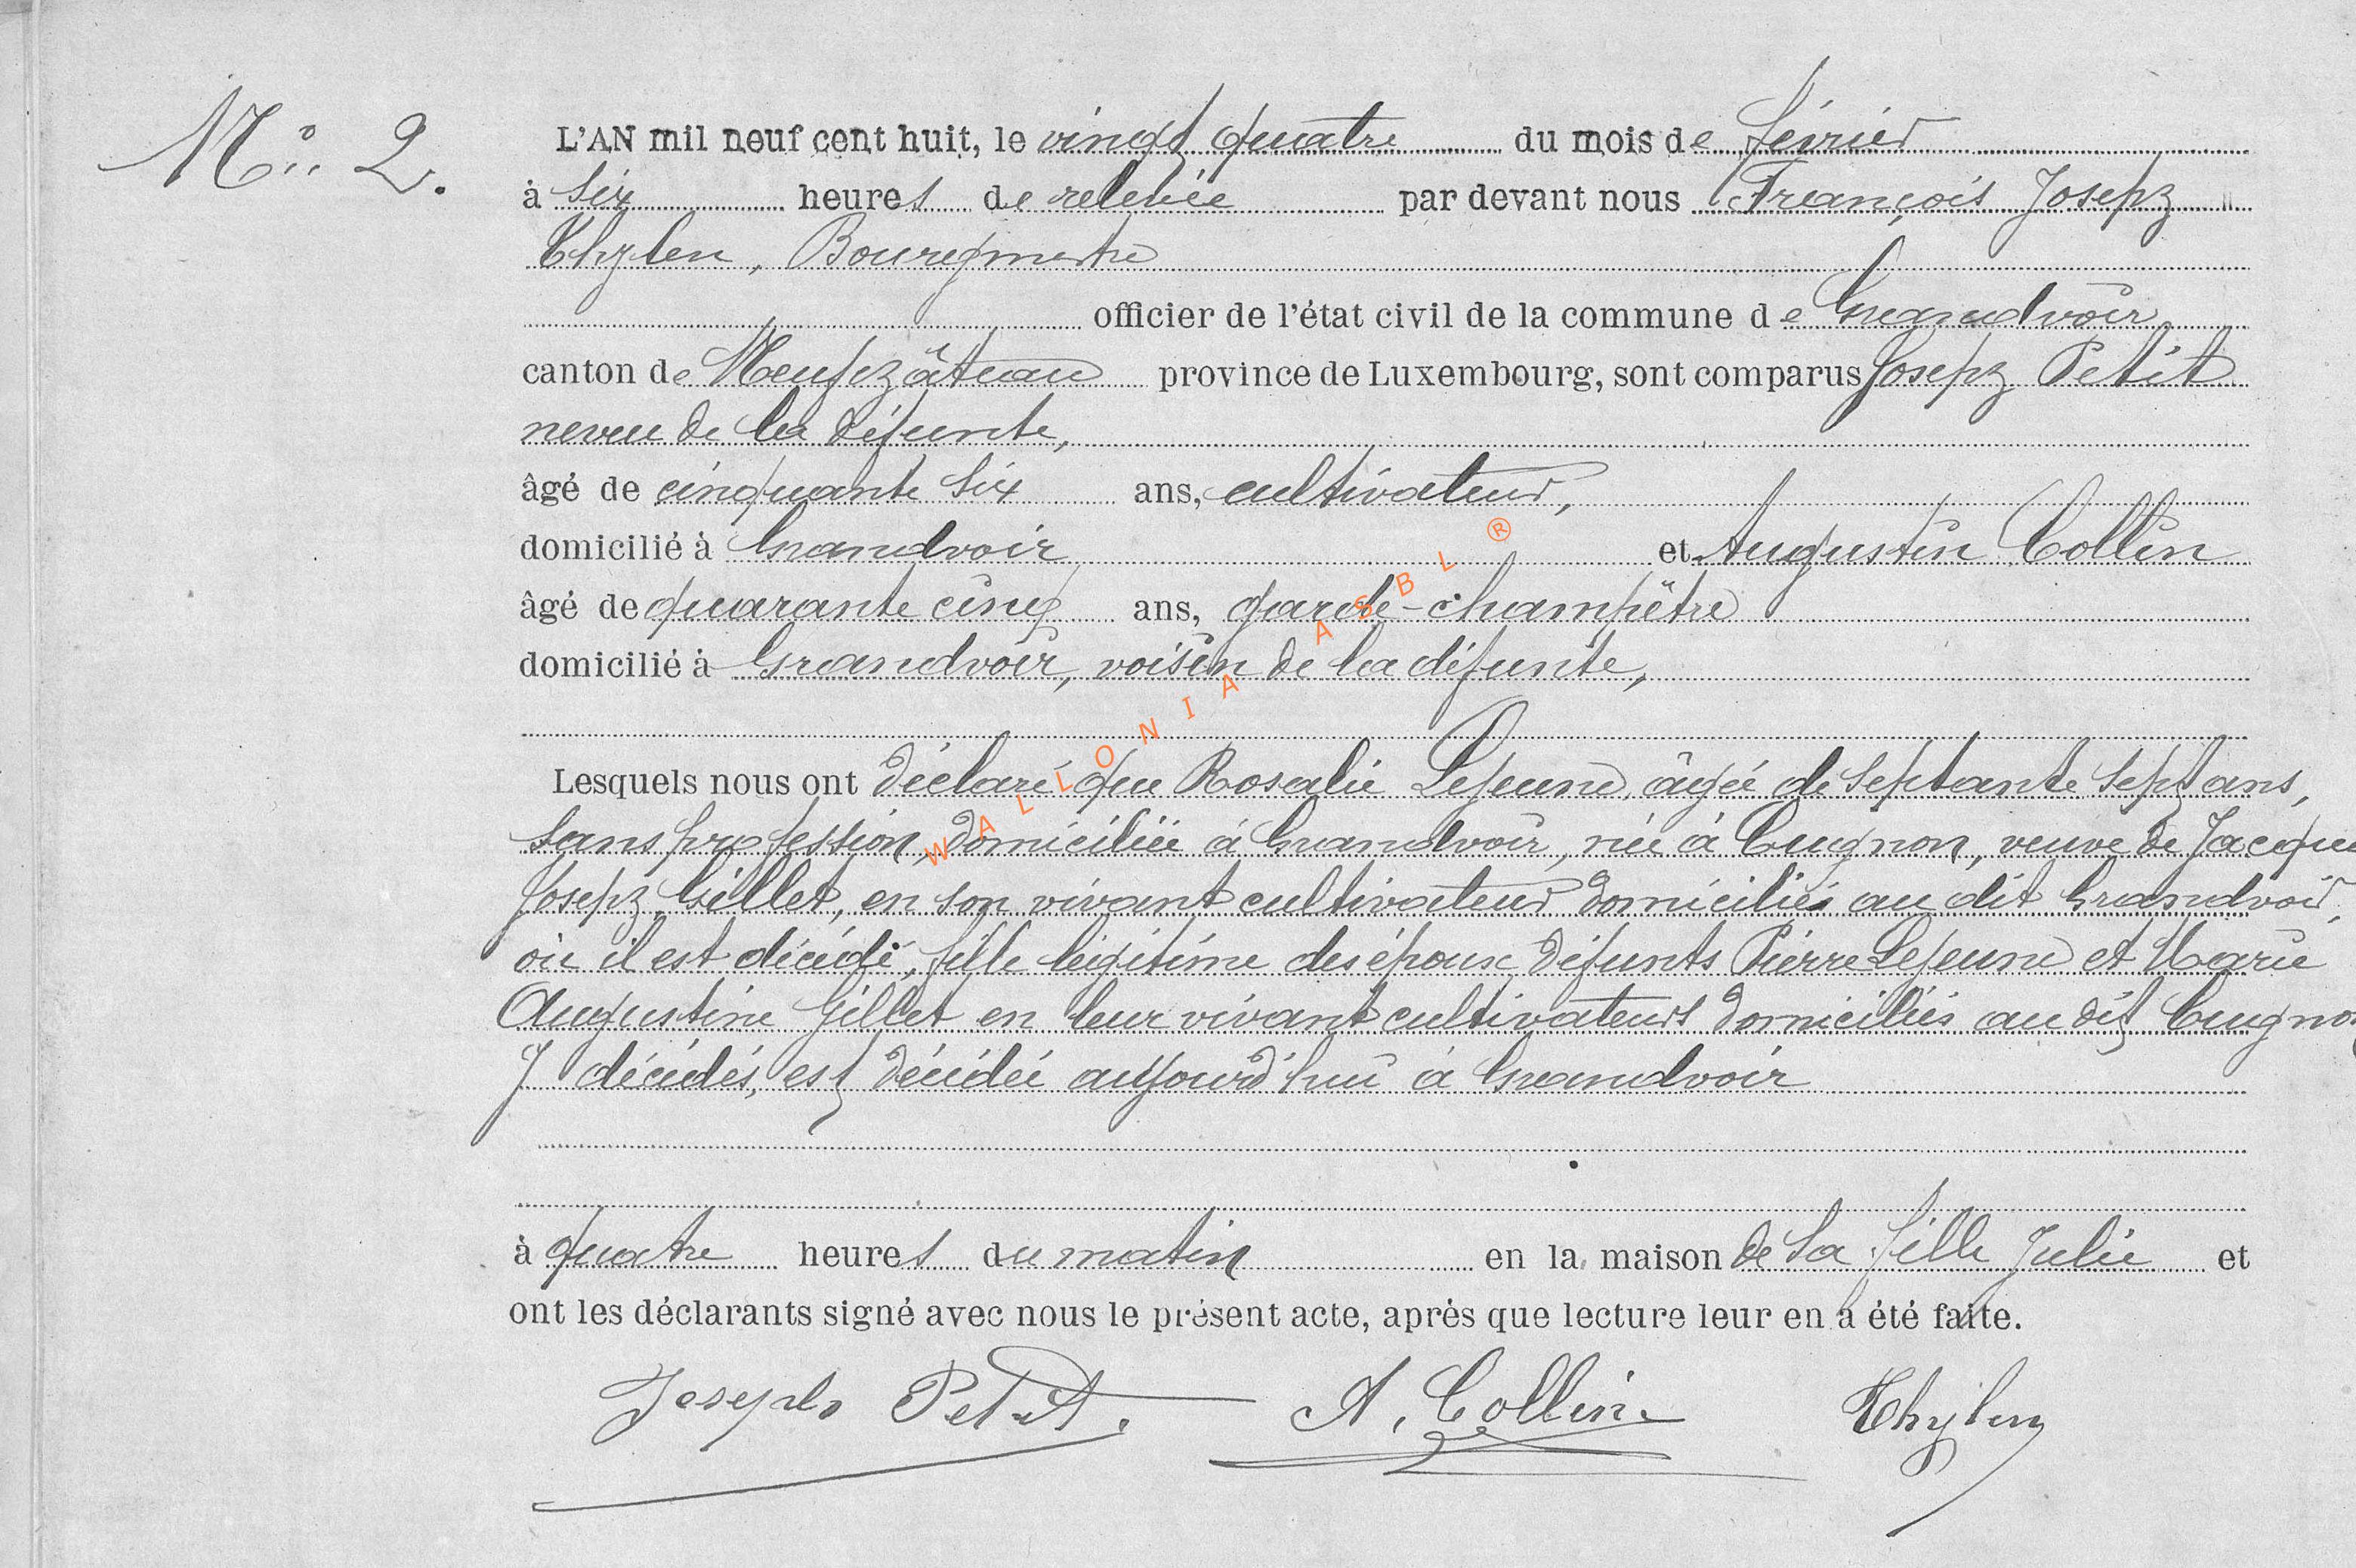 N° 2.
L'AN mil neuf cent huit, le vingt quatre du mois de février
à six heures de relevée par devant nous François Joseph
Thylen, Bourgmestre
officier de l'état civil de la commune de Grandvoir
canton de Neufchâteau province de Luxembourg, sont comparus Joseph Petit
neveu de la défunte,
âgé de cinquante six ans, cultivateur,
domicilié à Grandvoir et Augustin Collin
âgé de quarante cinq ans, garde-champêtre
domicilié à Grandvoir, voisin de la défunte,
Lesquels nous ont déclaré que Rosalie Lejeune, âgée de septante sept ans,
sans profession, domiciliée à Grandvoir, née à Cugnon, veuve de Jacques
Joseph Gillet, en son vivant cultivateur domicilié au dit Grandvoir,
où il est décédé, fille légitime des époux défunts Pierre Lejeune et Marie
Augustine Gillet en leur vivant cultivateurs domiciliés au dit Cugnon
y décédés, est décédée aujourd'hui à Grandvoir
à quatre heures du matin en la maison de sa fille Julie et
ont les déclarants signé avec nous le présent acte, après que lecture leur en a été faite.
Joseph Petit. A. Collin Thylen
WALLONIA ASBL ®